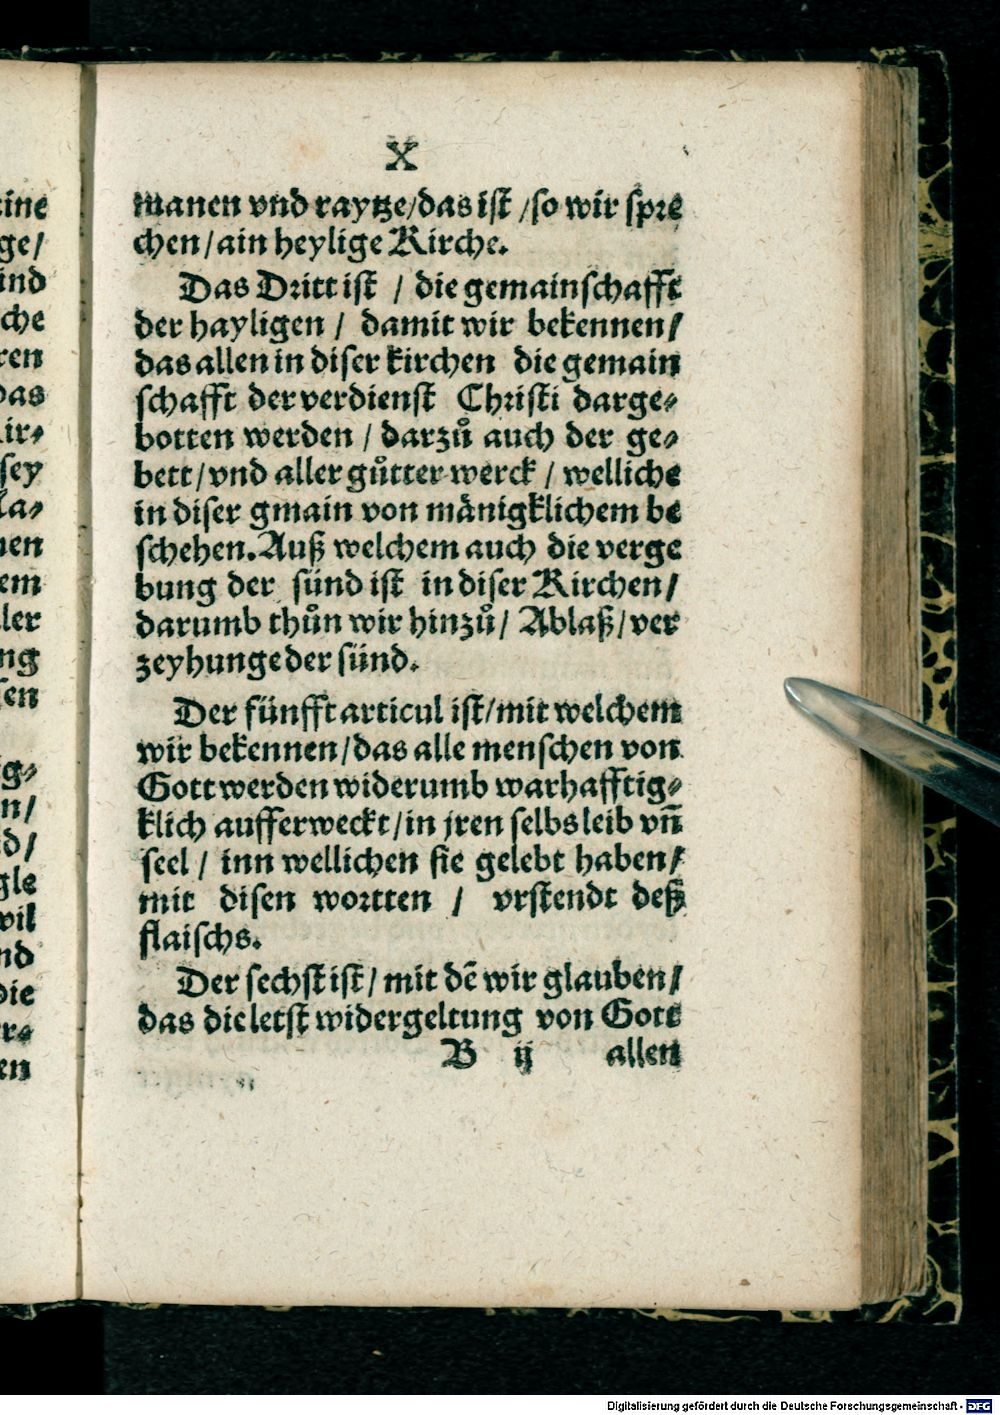 X
manen vnd raytze/das ist /so wir spre
chen/ain heylige Kirche.
Das Dritt ist / die gemainschafft
der hayligen / damit wir bekennen/
das allen in diser kirchen die gemain
schafft der verdienst Christi darge⸗
botten werden / darzuͦ auch der ge⸗
bett/vnd aller guͦtter werck / welliche
in diser gmain von maͤnigklichem be
schehen. Auß welchem auch die verge
bung der sünd ist in diser Kirchen/
darumb thuͦn wir hinzuͦ/ Ablaß/ver
zeyhunge der sünd.
Der fünfft articul ist/mit welchem
wir bekennen/das alle menschen von
Gott werden widerumb warhafftig⸗
klich aufferweckt/in jren selbs leib vñ
seel / inn wellichen sie gelebt haben/
mit disen wortten / vrstendt deß
flaischs.
Der sechst ist/ mit dē wir glauben/
das die letst widergeltung von Gott
B ij allen
eine
ge/
ind
che
ren
das
Kir⸗
sey
la⸗
nen
em
ler
ng
sen
ig⸗
n/
d/
gle
wil
nd
die
er⸗
en
Digitalisierung gefördert durch die Deutsche Forschungsgemeinschaft - DFG